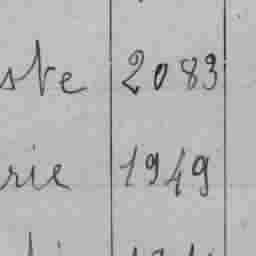 ste 2083
rie 1949